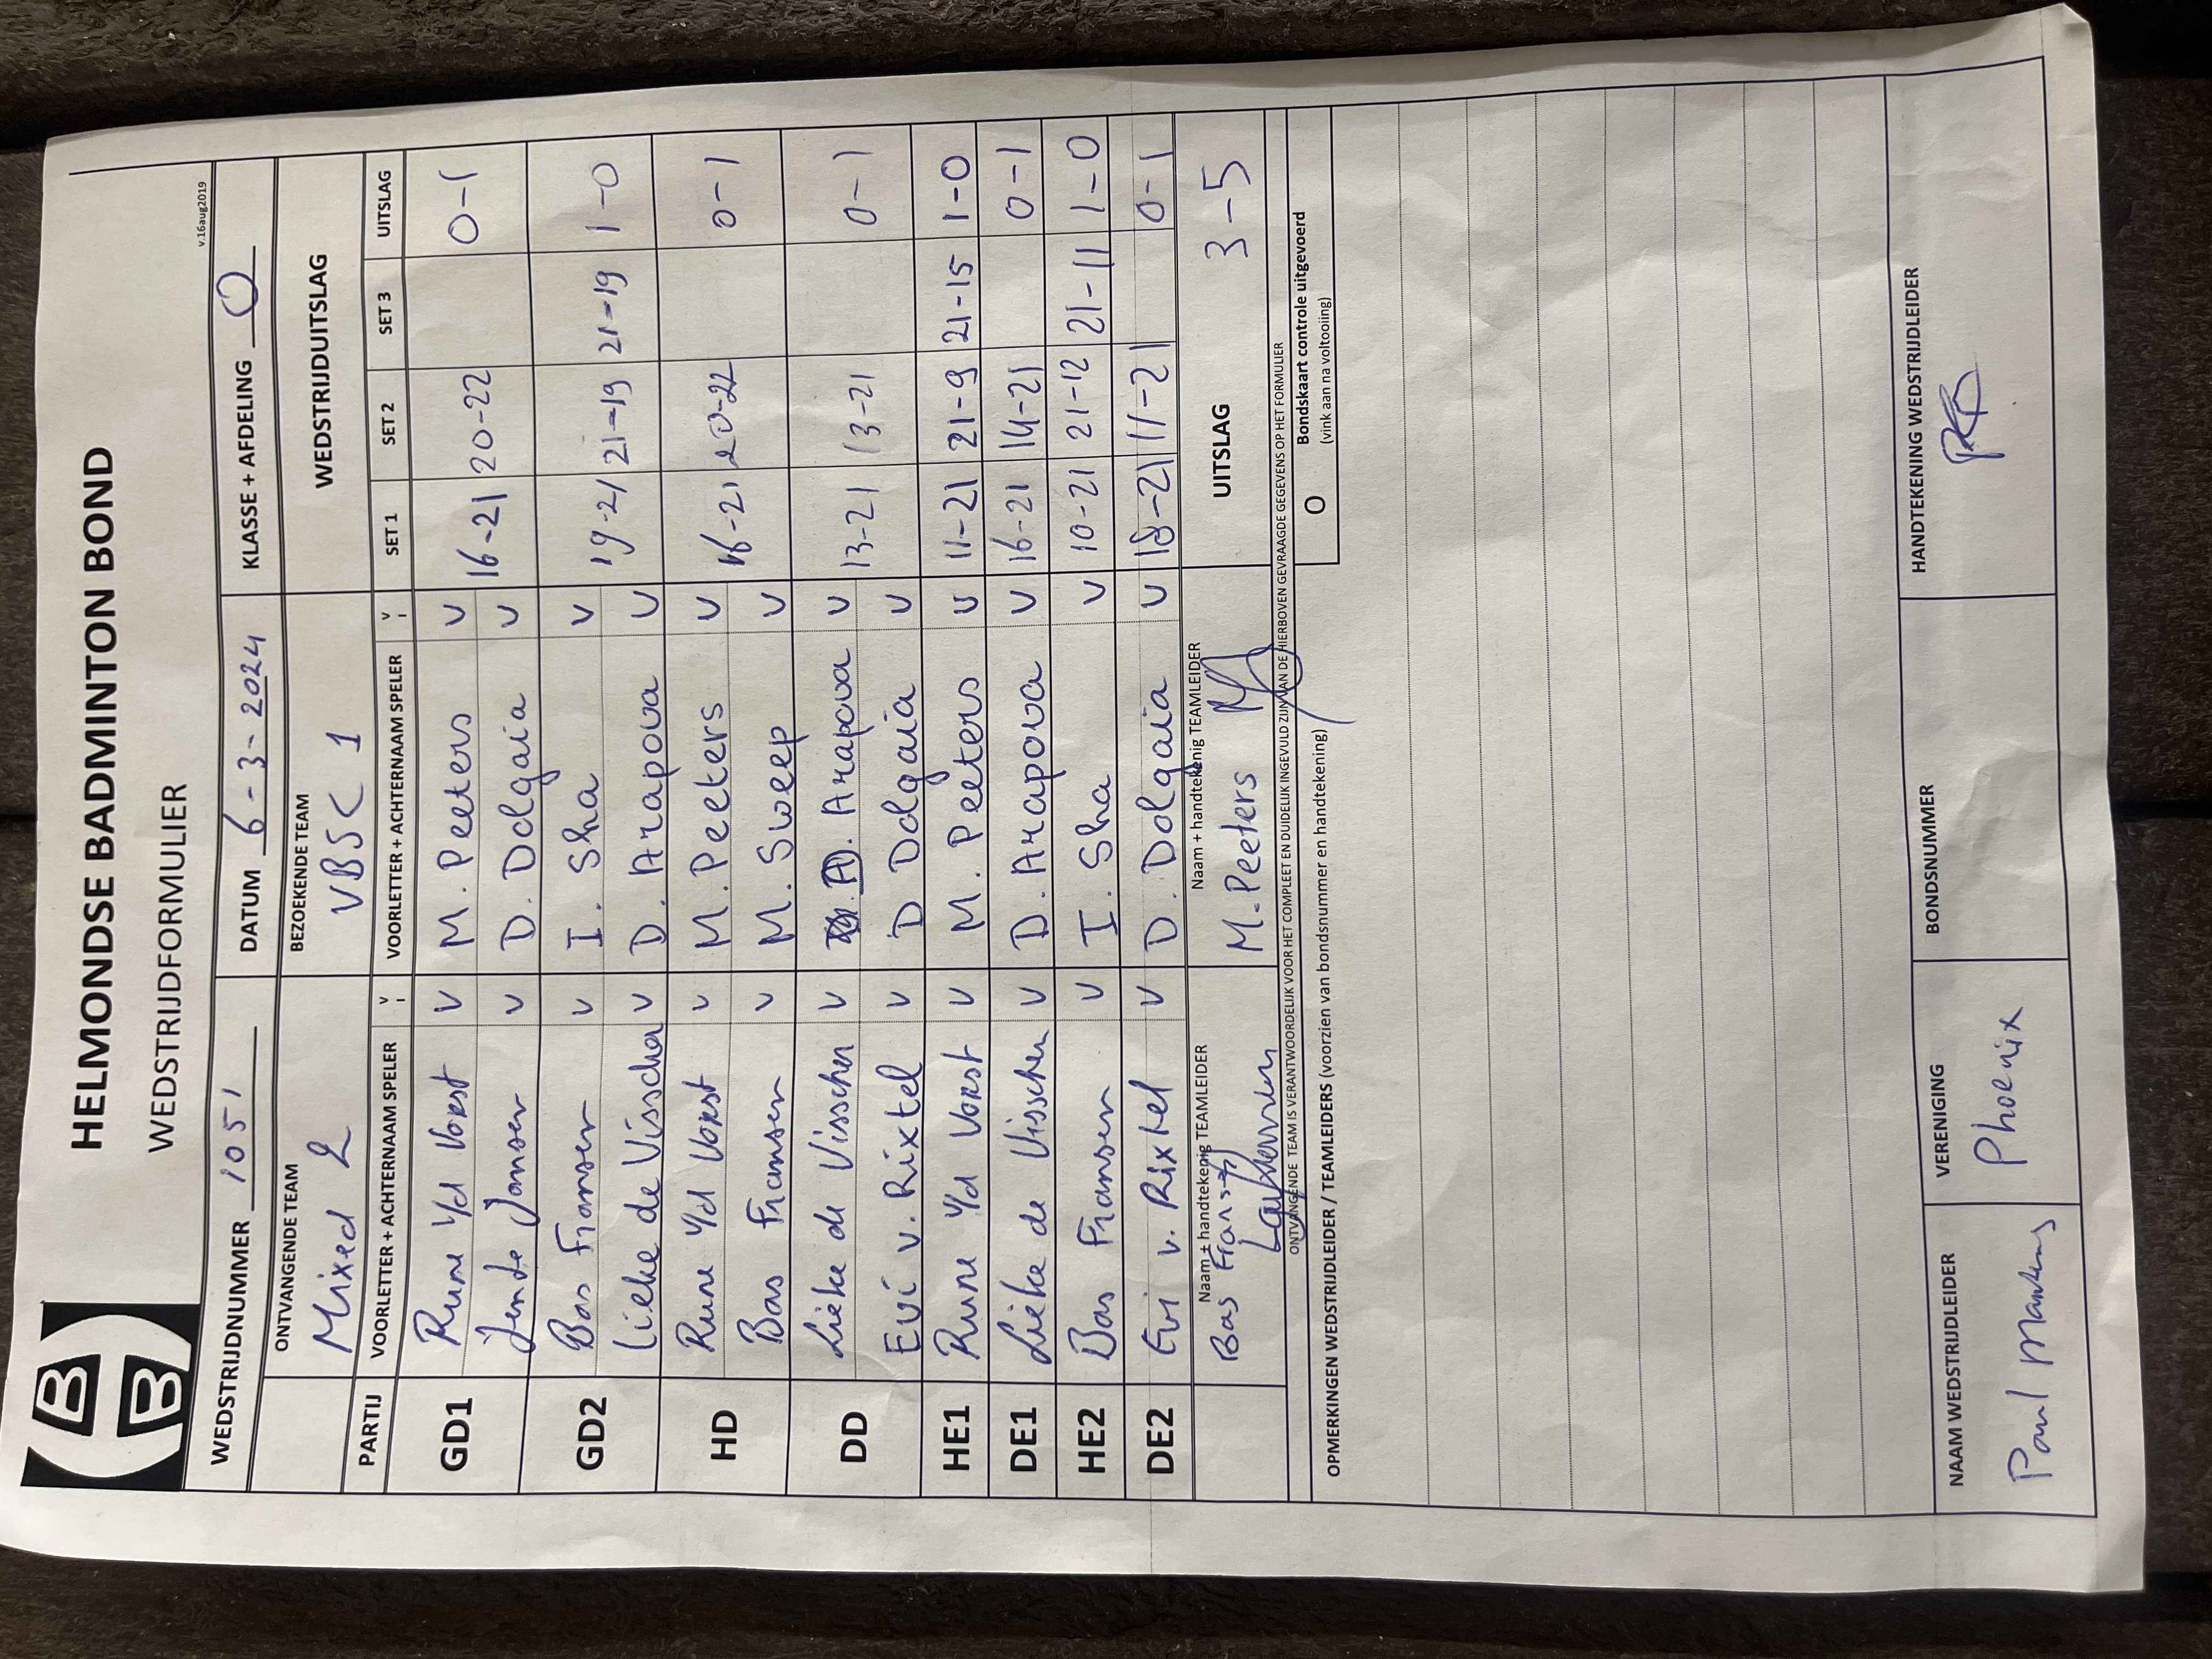 HELMONDSE BADMINTON BOND
WEDSTRIJDFORMULIER
v.16aug2019
WEDSTRIJDNUMMER 1051 DATUM 6-3-2024 KLASSE + AFDELING O
ONTVANGENDE TEAM BEZOEKENDE TEAM WEDSTRIJDUITSLAG
Mixed 2 VBSC 1
PARTIJ VOORLETTER + ACHTERNAAM SPELER V VOORLETTER + ACHTERNAAM SPELER V SET 1 SET 2 SET 3 UITSLAG
GD1 Rune v/d Vorst V M. Peeters V 16-21 20-22 0-1
Jente Jansen V D. Dolgaia V
GD2 Bas Fransen V I. Sha V 19-21 21-19 21-19 1-0
Lieke de Visscher V D. Arapova V
HD Rune v/d Vorst V M. Peeters V 16-21 20-22 0-1
Bas Fransen V M. Sweep V
DD Lieke de Visscher V D. Arapova V 13-21 13-21 0-1
Evi v. Rixtel V D Dolgaia V
HE1 Rune v/d Vorst V M. Peeters V 11-21 21-9 21-15 1-0
DE1 Lieke de Visscher V D. Arapova V 16-21 14-21 0-1
HE2 Bas Fransen V I. Sha V 10-21 21-12 21-11 1-0
DE2 Evi v. Rixtel V D. Dolgaia V 18-21 11-21 0-1
Naam + handtekenig TEAMLEIDER Naam + handtekenig TEAMLEIDER UITSLAG 3-5
Bas Fransen M. Peeters
ONTVANGENDE TEAM IS VERANTWOORDELIJK VOOR HET COMPLEET EN DUIDELIJK INGEVULD ZIJN VAN DE HIERBOVEN GEVRAAGDE GEGEVENS OP HET FORMULIER
OPMERKINGEN WEDSTRIJDLEIDER / TEAMLEIDERS (voorzien van bondsnummer en handtekening)
O Bondskaart controle uitgevoerd
(vink aan na voltooiing)
NAAM WEDSTRIJDLEIDER VERENIGING BONDSNUMMER HANDTEKENING WEDSTRIJDLEIDER
Paul Phoenix